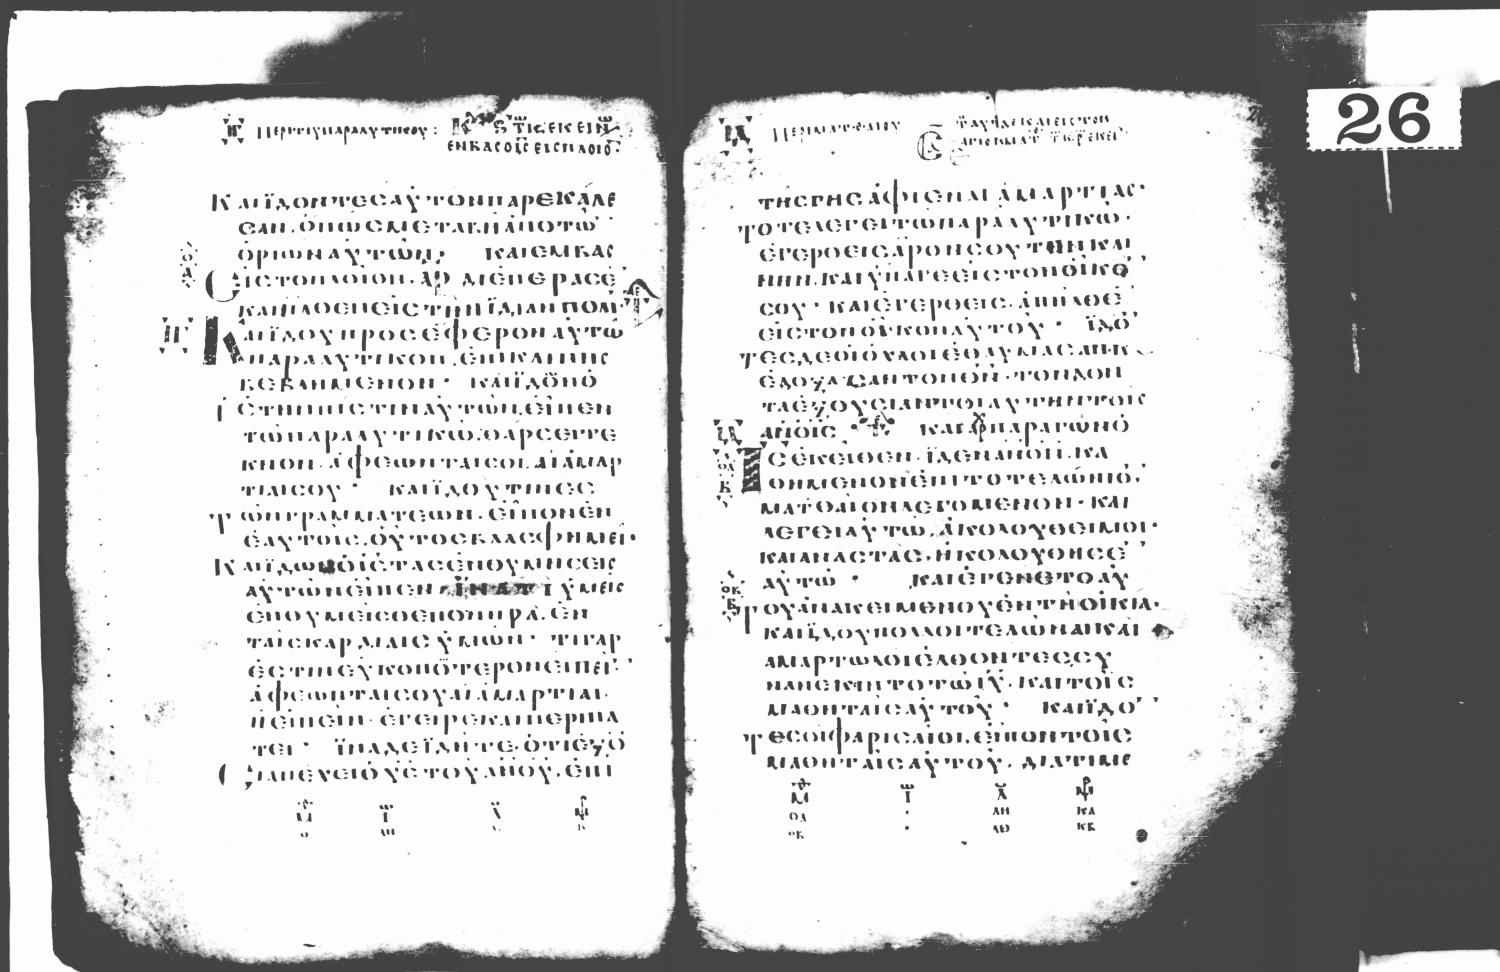 ΠΕΡΙΤΟΥΠΑΡΑΛΥΤΙΚΟΥ:
ΕΝΒΑΣΟΙΣΕΙΣΠΛΟΙΟ
ΚΑΙΪΔΟΝΤΕΣΑΥΤΟΝΠΑΡΕΚΑΛΕ
ΣΑΝ.ΟΠΩΣΜΕΤΑΒΗΑΠΟΤΩ
ΟΡΙΩΝΑΥΤΩΝ. ΚΑΙΕΜΒΑΣ
ΕΙΣΤΟΠΛΟΙΟΝ. ΔΙΕΠΕΡΑΣΕ
ΚΑΙΗΛΘΕΝΕΙΣΤΗΝΪΔΙΑΝΠΟΛΙ
ΚΑΙΪΔΟΥΠΡΟΣΕΦΕΡΟΝΑΥΤΩ
ΠΑΡΑΛΥΤΙΚΟΝ.ΕΠΙΚΛΙΝΗΣ
ΒΕΒΛΗΜΕΝΟΝ· ΚΑΙΪΔΩΝΟ
ΙΣΤΗΝΠΙΣΤΙΝΑΥΤΩΝ.ΕΙΠΕΝ
ΤΩΠΑΡΑΛΥΤΙΚΩ.ΘΑΡΣΕΙΤΕ
ΚΝΟΝ.ΑΦΕΩΝΤΑΙΣΟΙ.ΑΙΑΜΑΡ
ΤΙΑΙΣΟΥ· ΚΑΙΪΔΟΥΤΙΝΕΣ
ΤΩΝΓΡΑΜΜΑΤΕΩΝ.ΕΙΠΟΝΕΝ
ΕΑΥΤΟΙΣ.ΟΥΤΟΣΒΛΑΣΦΗΜΕΙ·
ΚΑΙΪΔΩΝΟΙΣΤΑΣΕΝΘΥΜΗΣΕΙΣ
ΑΥΤΩΝΕΙΠΕΝ.ΪΝΑΤΙΥΜΕΙΣ
ΕΝΘΥΜΕΙΣΘΕΠΟΝΗΡΑ.ΕΝ
ΤΑΙΣΚΑΡΔΙΑΙΣΥΜΩΝ· ΤΙΓΑΡ
ΕΣΤΙΝΕΥΚΟΠΩΤΕΡΟΝΕΙΠΕΙ
ΑΦΕΩΝΤΑΙΣΟΥΑΙΑΜΑΡΤΙΑΙ.
ΗΕΙΠΕΙΝ·ΕΓΕΙΡΕΚΑΙΠΕΡΙΠΑ
ΤΕΙ· ΪΝΑΔΕΪΔΗΤΕ.ΟΤΙΕΞΟ
ΣΙΑΝΕΧΕΙΟΥΣΤΟΥΑΝΟΥ.ΕΠΙ
ΠΕΡΙΜΑΤΘΑΙΟΥ
ΤΗΣΓΗΣΑΦΙΕΝΑΙΑΜΑΡΤΙΑΣ·
ΤΟΤΕΛΕΓΕΙΤΩΠΑΡΑΛΥΤΙΚΩ·
ΕΓΕΡΘΕΙΣΑΡΟΝΣΟΥΤΗΝΚΛΙ
ΝΗΝ.ΚΑΙΥΠΑΓΕΕΙΣΤΟΝΟΙΚΟ
ΣΟΥ· ΚΑΙΕΓΕΡΘΕΙΣ.ΑΠΗΛΘΕ
ΕΙΣΤΟΝΟΙΚΟΝΑΥΤΟΥ· ΪΔΟ
ΤΕΣΔΕΟΙΟΧΛΟΙΕΘΑΥΜΑΣΑΝ.Κ
ΕΔΟΞΑΣΑΝΤΟΝΘΝ.ΤΟΝΔΟΝ
ΤΑΕΞΟΥΣΙΑΝΤΟΙΑΥΤΗΝΤΟΙΣ
ΑΝΟΙΣ ΚΑΙΠΑΡΑΓΩΝΟ
ΙΣΕΚΕΙΘΕΝ.ΪΔΕΝΑΝΟΝ.ΚΑ
ΘΗΜΕΝΟΝΕΠΙΤΟΤΕΛΩΝΙΟ.
ΜΑΤΘΑΙΟΝΛΕΓΟΜΕΝΟΝ·ΚΑΙ
ΛΕΓΕΙΑΥΤΩ.ΑΚΟΛΟΥΘΕΙΜΟΙ·
ΚΑΙΑΝΑΣΤΑΣ.ΗΚΟΛΟΥΘΗΣΕ
ΑΥΤΩ· ΚΑΙΕΓΕΝΕΤΟΑΥ
ΤΟΥΑΝΑΚΕΙΜΕΝΟΥΕΝΤΗΟΙΚΙΑ.
ΚΑΙΪΔΟΥΠΟΛΛΟΙΤΕΛΩΝΑΙΚΑΙ
ΑΜΑΡΤΩΛΟΙΕΛΘΟΝΤΕΣ.ΣΥ
ΝΑΝΕΚΕΙΝΤΟΤΩΙΥ.ΚΑΙΤΟΙΣ
ΜΑΘΗΤΑΙΣΑΥΤΟΥ· ΚΑΙΪΔΟ
ΤΕΣΟΙΦΑΡΙΣΑΙΟΙ.ΕΙΠΟΝΤΟΙΣ
ΜΑΘΗΤΑΙΣΑΥΤΟΥ.ΔΙΑΤΙΜΕ
26